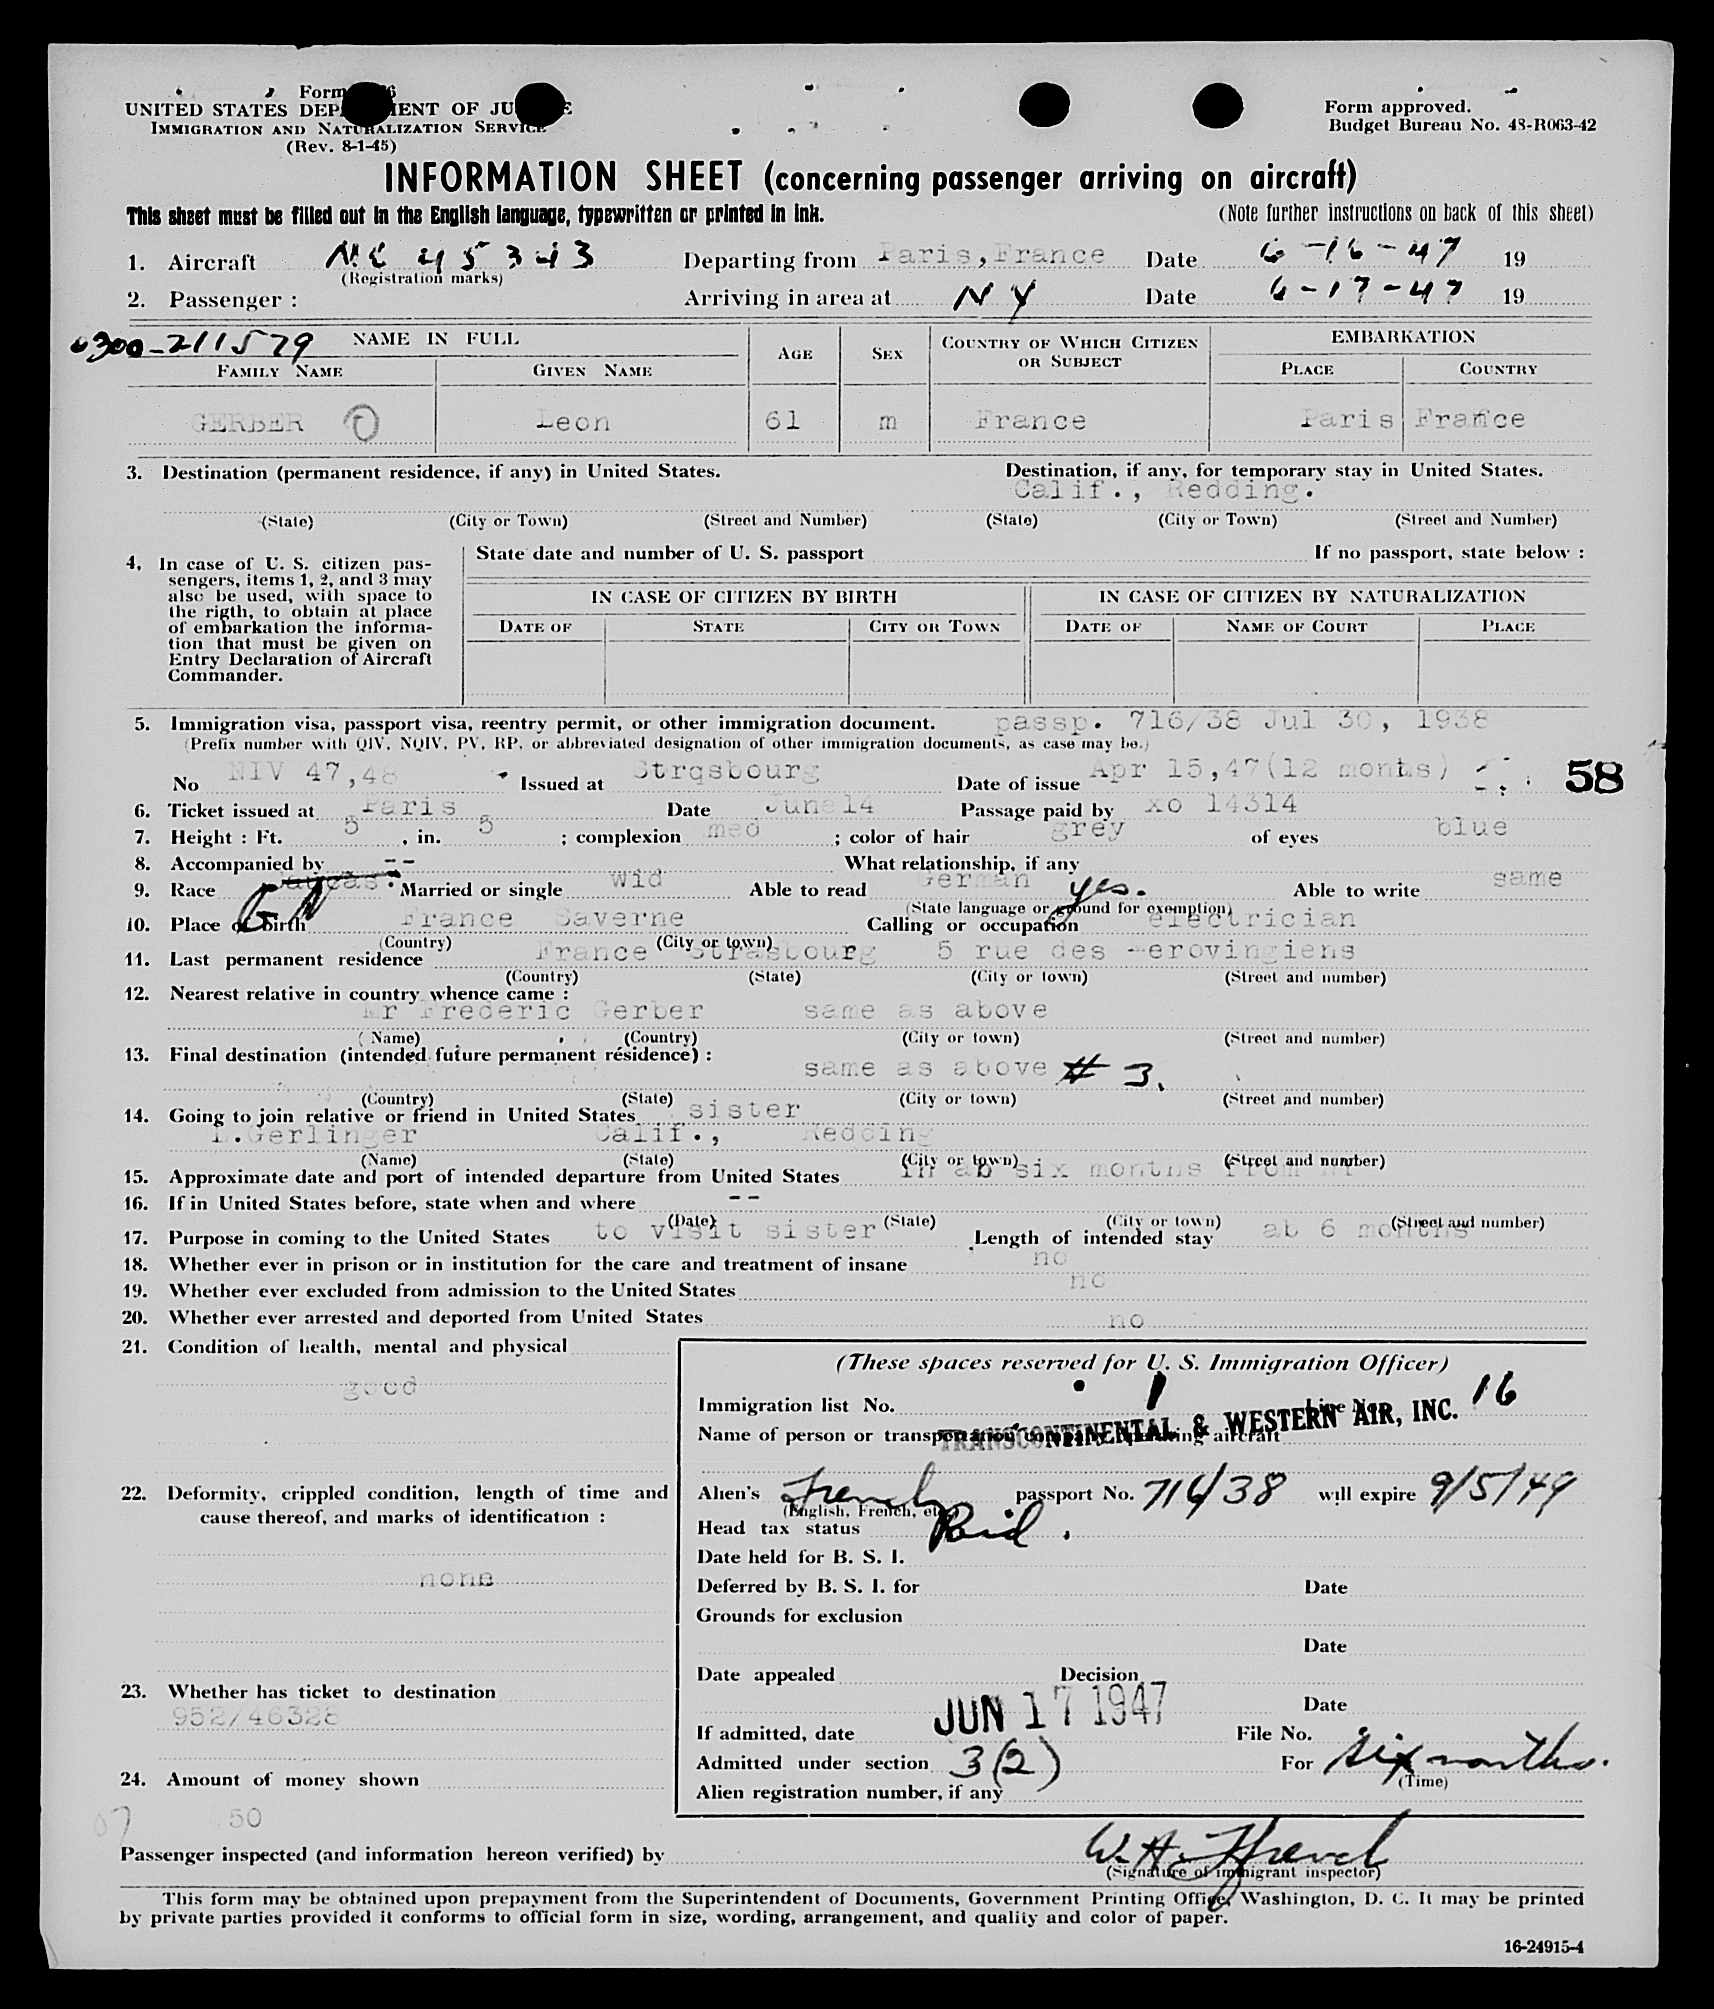 Form
UNITED STATES DEP ENT OF JU E
IMMIGRATION AND NATURALIZATION SERVICE
(Rev. 8-1-45)
Form approved.
Budget Bureau No. 43-R063-42
INFORMATION SHEET (concerning passenger arriving on aircraft)
This sheet must be filled out in the English language, typewritten or printed in ink. (Note further instructions on back of this sheet)
1. Aircraft NC 45343 Departing from Paris, France Date 6-16-47 19
(Registration marks)
2. Passenger : Arriving in area at NY Date 6-17-47 19
0300-211579 NAME IN FULL AGE SEX COUNTRY OF WHICH CITIZEN OR SUBJECT EMBARKATION
FAMILY NAME GIVEN NAME PLACE COUNTRY
GERBER Leon 61 m France Paris France
3. Destination (permanent residence, if any) in United States. Destination, if any, for temporary stay in United States.
Calif., Redding.
(State) (City or Town) (Street and Number) (State) (City or Town) (Street and Number)
4. In case of U. S. citizen pas-
sengers, items 1, 2, and 3 may
also be used, with space to
the rigth, to obtain at place
of embarkation the informa-
tion that must be given on
Entry Declaration of Aircraft
Commander.
State date and number of U. S. passport If no passport, state below :
IN CASE OF CITIZEN BY BIRTH IN CASE OF CITIZEN BY NATURALIZATION
DATE OF STATE CITY OR TOWN DATE OF NAME OF COURT PLACE
5. Immigration visa, passport visa, reentry permit, or other immigration document. passp. 716/38 Jul 30, 1938
(Prefix number with QIV, NQIV, PV, RP, or abbreviated designation of other immigration documents, as case may be.)
No NIV 47,48 Issued at Strqsbourg Date of issue Apr 15,47(12 months) 58
6. Ticket issued at Paris Date June 14 Passage paid by xo 14314
7. Height : Ft. 5 , in. 5 ; complexion med ; color of hair grey of eyes blue
8. Accompanied by -- What relationship, if any
9. Race Married or single wid Able to read German yes. Able to write same
(State language or ground for exemption)
10. Place of birth France Saverne Calling or occupation electrician
(Country) (City or town)
11. Last permanent residence France Strasbourg 5 rue des Merovingiens
(Country) (State) (City or town) (Street and number)
12. Nearest relative in country whence came :
Mr Frederic Gerber same as above
(Name) (Country) (City or town) (Street and number)
13. Final destination (intended future permanent résidence) :
same as above # 3.
(Country) (State) (City or town) (Street and number)
14. Going to join relative or friend in United States sister
L.Gerlinger Calif., Redding
(Name) (State) (City or town) (Street and number)
15. Approximate date and port of intended departure from United States in ab six months from NY
16. If in United States before, state when and where --
(Date) (State) (City or town) (Street and number)
17. Purpose in coming to the United States to visit sister Length of intended stay ab 6 months
18. Whether ever in prison or in institution for the care and treatment of insane no
19. Whether ever excluded from admission to the United States no
20. Whether ever arrested and deported from United States no
21. Condition of health, mental and physical
good
22. Deformity, crippled condition, length of time and
cause thereof, and marks of identification :
none
23. Whether has ticket to destination
952/46328
24. Amount of money shown
50
(These spaces reserved for U. S. Immigration Officer)
Immigration list No. 1 Line No. 16
Name of person or transportation company operating aircraft TRANSCONTINENTAL & WESTERN AIR, INC.
Alien's French passport No. 716/38 will expire 9/5/49
(English, French, etc.)
Head tax status Paid.
Date held for B. S. I.
Deferred by B. S. I. for Date
Grounds for exclusion
Date
Date appealed Decision
Date
If admitted, date JUN 17 1947 File No.
Admitted under section 3(2) For six months.
(Time)
Alien registration number, if any
Passenger inspected (and information hereon verified) by W. A. French
(Signature of immigrant inspector)
This form may be obtained upon prepayment from the Superintendent of Documents, Government Printing Office, Washington, D. C. It may be printed
by private parties provided it conforms to official form in size, wording, arrangement, and quality and color of paper.
16-24915-4